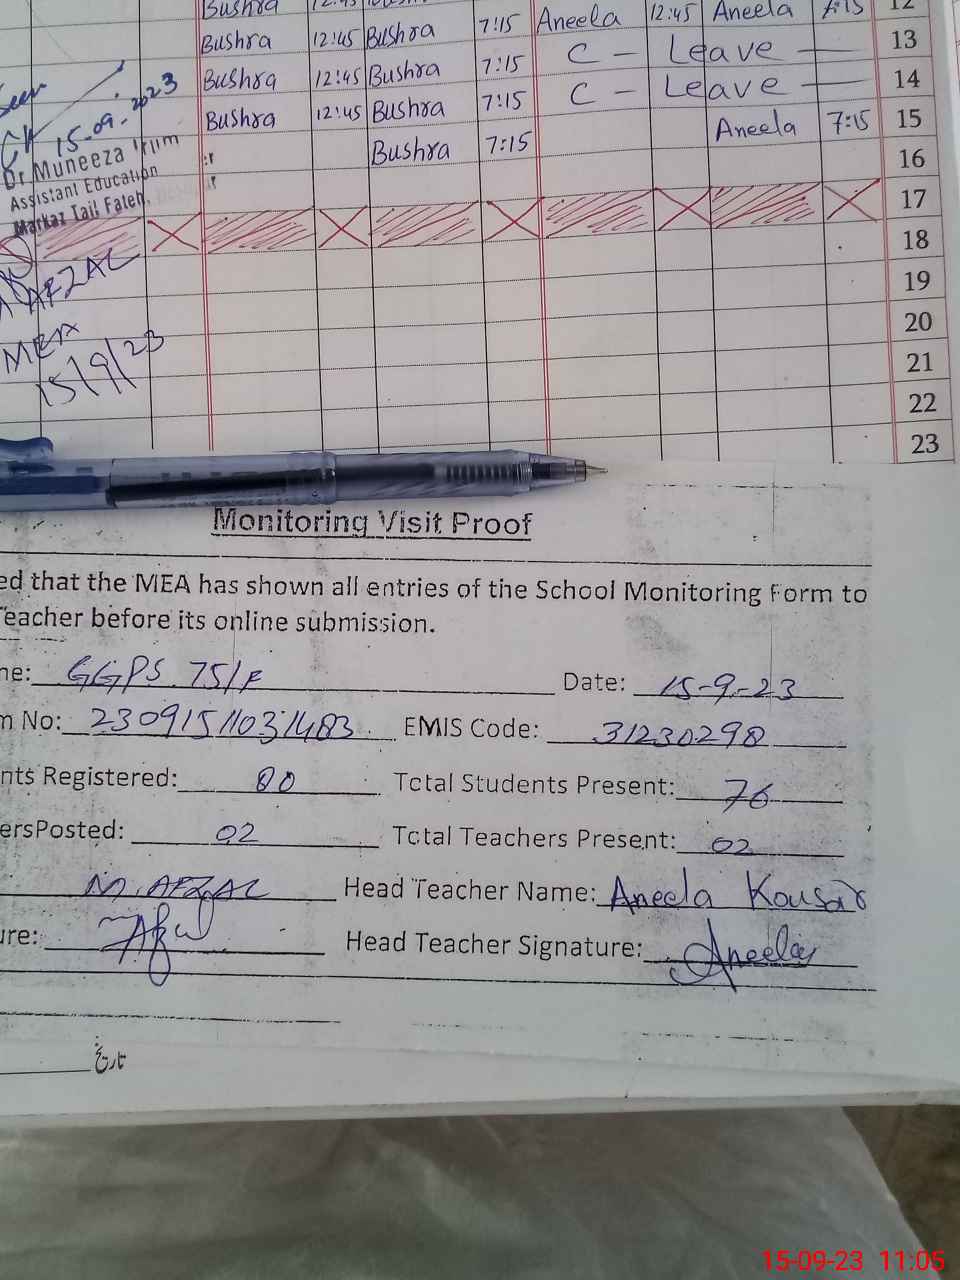 Bushra 12:45 Bushra 7:15 Aneela 12:45 Aneela 7:15 12
Bushra 12:45 Bushra 7:15 C - Leave — 13
Bushra 12:45 Bushra 7:15 C - Leave — 14
Bushra 12:45 Bushra 7:15 Aneela 7:15 15
Bushra 7:15 16
17
18
19
20
21
22
23
Seen
15-09-2023
Dr Muneeza
Assistant Education
Markaz Tail Fateh
AFZAL
MEA
15/9/23
Monitoring Visit Proof
ed that the MEA has shown all entries of the School Monitoring Form to
Teacher before its online submission.
ne: GGPS 75/F Date: 15-9-23
m No: 23091511031483 EMIS Code: 31230298
nts Registered: 80 Total Students Present: 76
ersPosted: 02 Total Teachers Present: 02
M. AFZAL Head Teacher Name: Aneela Kousar
ure: Afzal Head Teacher Signature: Aneela
تاریخ
15-09-23 11:05